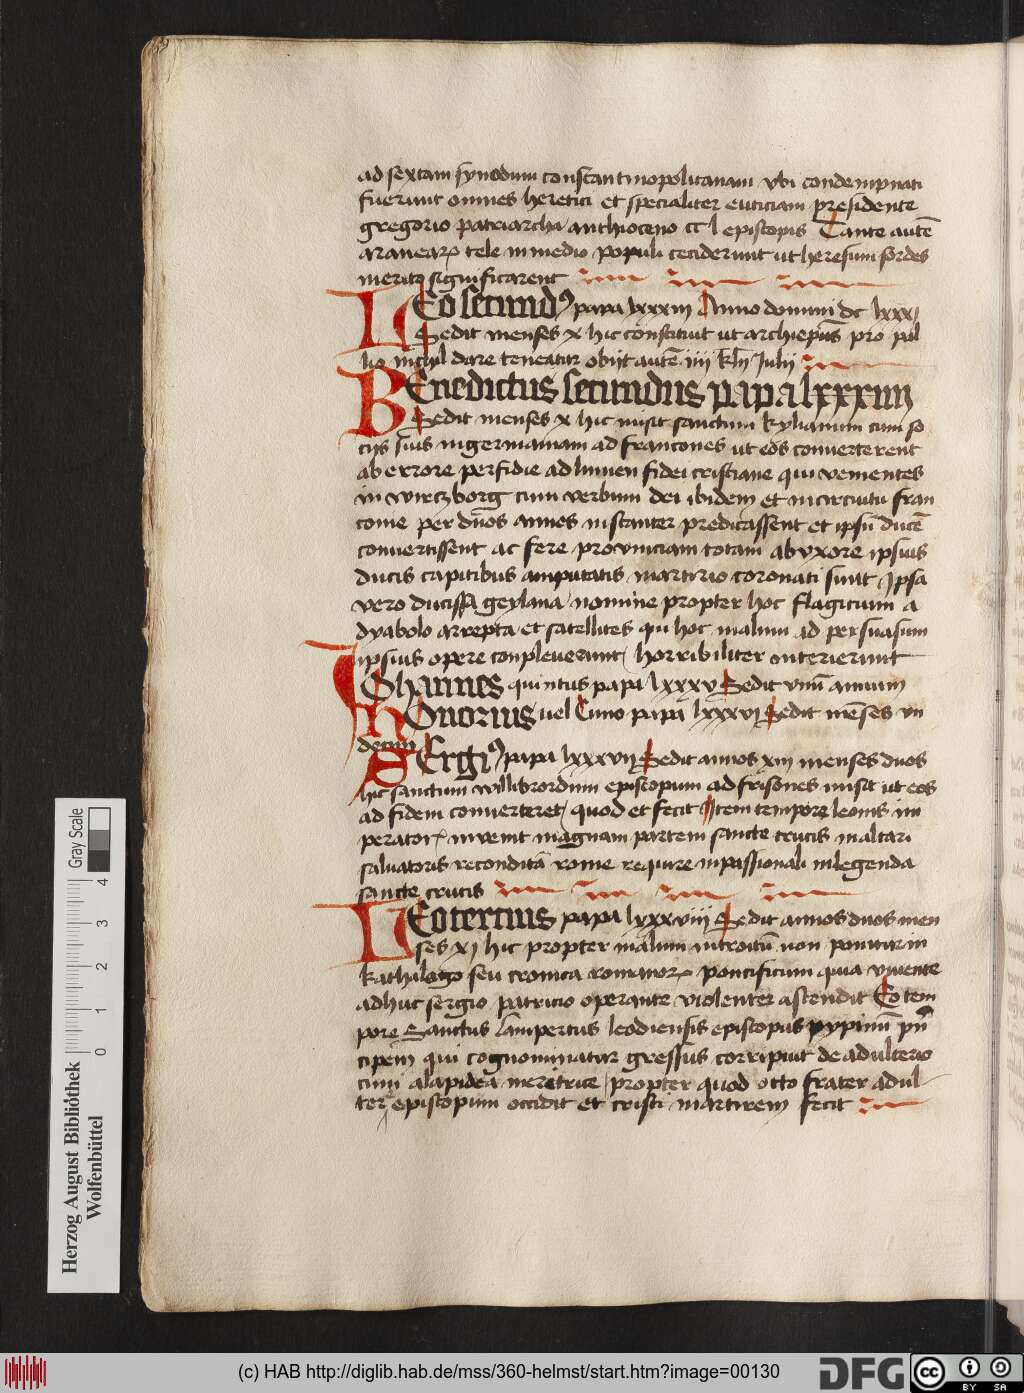 ad sextam synodum constantinopolitanam vbi condempnati
fuerunt omnes heretici et specialiter euticiani presidente
gregorio patriarcha anthioceno cc l episcopis Tante autē
aranearꝝ tele in medio populi ceciderunt ut heresum sordes
merito significarent
LEo secundꝰ papa lxxxiii Anno domini dc lxxxi
Sedit menses x hic constituit ut archiepūs pro pal
lio nichil dare teneatur obijt autē iiii kl̄n Julij
BEnedictus secundus papa lxxxiiii
Sedit menses x hic misit sanctum kylianum cum so
cijs suis in germaniam ad francones ut eos conuerterent
ab errore perfidie ad lumen fidei cristiane qui venientes
in wirczborg cum verbum dei ibidem et in circuitu fran
conie per duos annos instanter predicassent et ipsū ducē
conuertissent ac fere prouinciam totam ab vxore ipsius
ducis capitibus amputatis martirio coronati sunt Ipsa
vero ducissa geylana nomine propter hoc flagicium a
dyabolo arrepta et satellites qui hoc malum ad persuasum
ipsius opere conpleuerunt horribiliter interierunt
IOhannes quintus papa lxxxv Sedit vnū annum
HOnorius uel Cuno papa lxxxvi Sedit mēses vn
decim
SErgiꝰ papa lxxxvij Sedit annos xiij menses duos
hic sanctum willibrordum episcopum ad frisones misit ut eos
ad fidem conuerteret quod et fecit Item tempore leonis im
peratorꝭ inuenit magnam partem sancte crucis in altari
saluatoris reconditā rome require in passionali in legenda
sancte crucis
LEo tercius papa lxxxviij Sedit annos duos men
ses xj hic propter malum introitū non ponitur in
kathilogo seu cronica romanorꝝ pontificum quia viuente
adhuc sergio patricio operante violenter ascendit Eo tem
pore Sanctus lampertus leodiensis episcopus pypinū pn̄
cipem qui cognominatur gressus corripuit de adulterio
cum alapidea meretrice propter quod otto frater adul
tere episcopum occidit et cristi martirem fecit
Herzog August Bibliothek
Wolfenbüttel
Gray Scale
0 1 2 3 4
(c) HAB http://diglib.hab.de/mss/360-helmst/start.htm?image=00130
DFG
cc BY SA